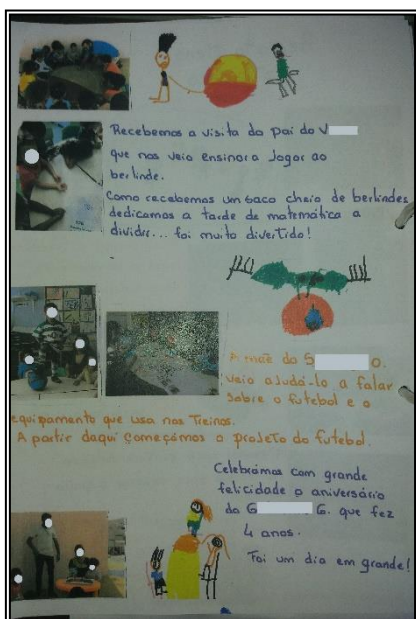 Recebemos a visita do pai do V
que nos veio ensinar a Jogar ao
berlinde.
Como recebemos um saco cheio de berlindes
dedicamos a tarde de matemática a
dividir... foi muito divertido!
A mãe do S o.
veio ajudá-lo a falar
sobre o futebol e o
equipamento que usa nos Treinos.
A partir daqui começámos o projeto do futebol.
Celebrámos com grande
felicidade o aniversário
do G G. que fez
4 anos.
Foi um dia em grande!